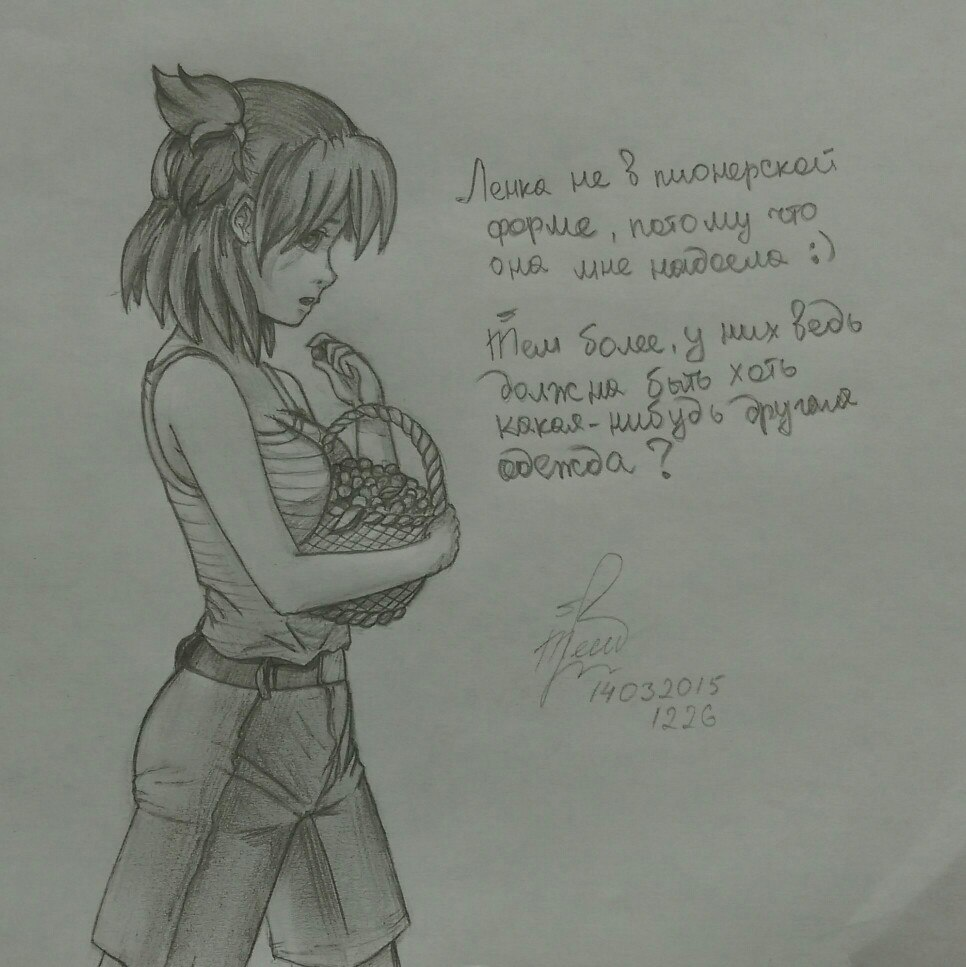 Ленка не в пионерской
форме, потому что
она мне надоела :)
Тем более, у них ведь
должна быть хоть
какая-нибудь другая
одежда?
14032015
1226